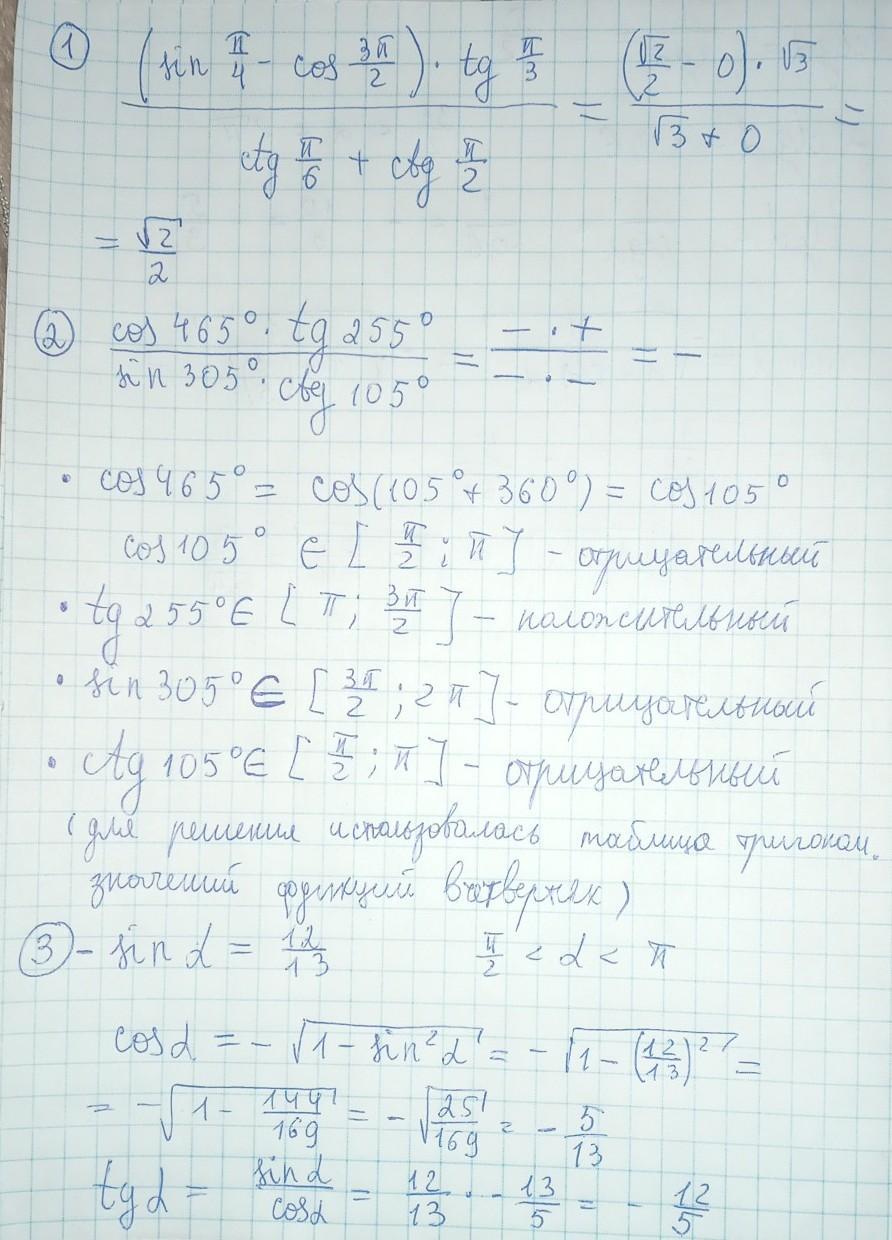 ① (sin π/4 - cos 3π/2) · tg π/3 / (ctg π/6 + ctg π/2) = (√2/2 - 0) · √3 / (√3 + 0) =
= √2/2
② cos 465° · tg 255° / (sin 305° · ctg 105°) = - · + / (- · -) = -
• cos 465° = cos(105° + 360°) = cos 105°
cos 105° ∈ [π/2; π] - отрицательный
• tg 255° ∈ [π; 3π/2] - положительный
• sin 305° ∈ [3π/2; 2π] - отрицательный
• ctg 105° ∈ [π/2; π] - отрицательный
(для решения использовалась таблица тригоном.
значений функций в четвертях)
③ - sin α = 12/13 π/2 < α < π
cos α = - √(1 - sin² α) = - √(1 - (12/13)²) =
= - √(1 - 144/169) = - √(25/169) = - 5/13
tg α = sin α / cos α = 12/13 · - 13/5 = - 12/5